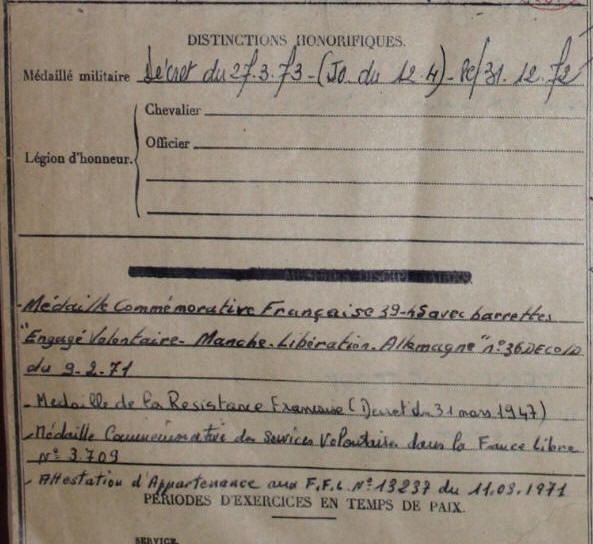 DISTINCTIONS HONORIFIQUES.
Médaillé militaire Décret du 27.3.73 - (JO. du 12.4) - Pe/31.12.72
Chevalier
Officier
Légion d'honneur.
- Médaille Commémorative Française 39-45 avec barrettes
"Engagé Volontaire - Manche. Libération. Allemagne" n° 36
du 9-2-71
- Medaille de la Resistance Francaise (Decret du 31 mars 1947)
- Médaille Commémorative des Services Volontaires dans la France Libre
N° 3.709
- Attestation d'Appartenance aux F.F.L N° 13237 du 11.03.1971
PÉRIODES D'EXERCICES EN TEMPS DE PAIX.
SERVICE